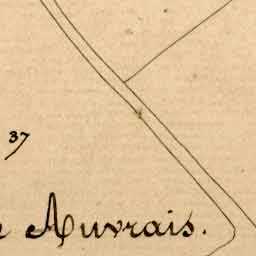 37
e Auvrais.